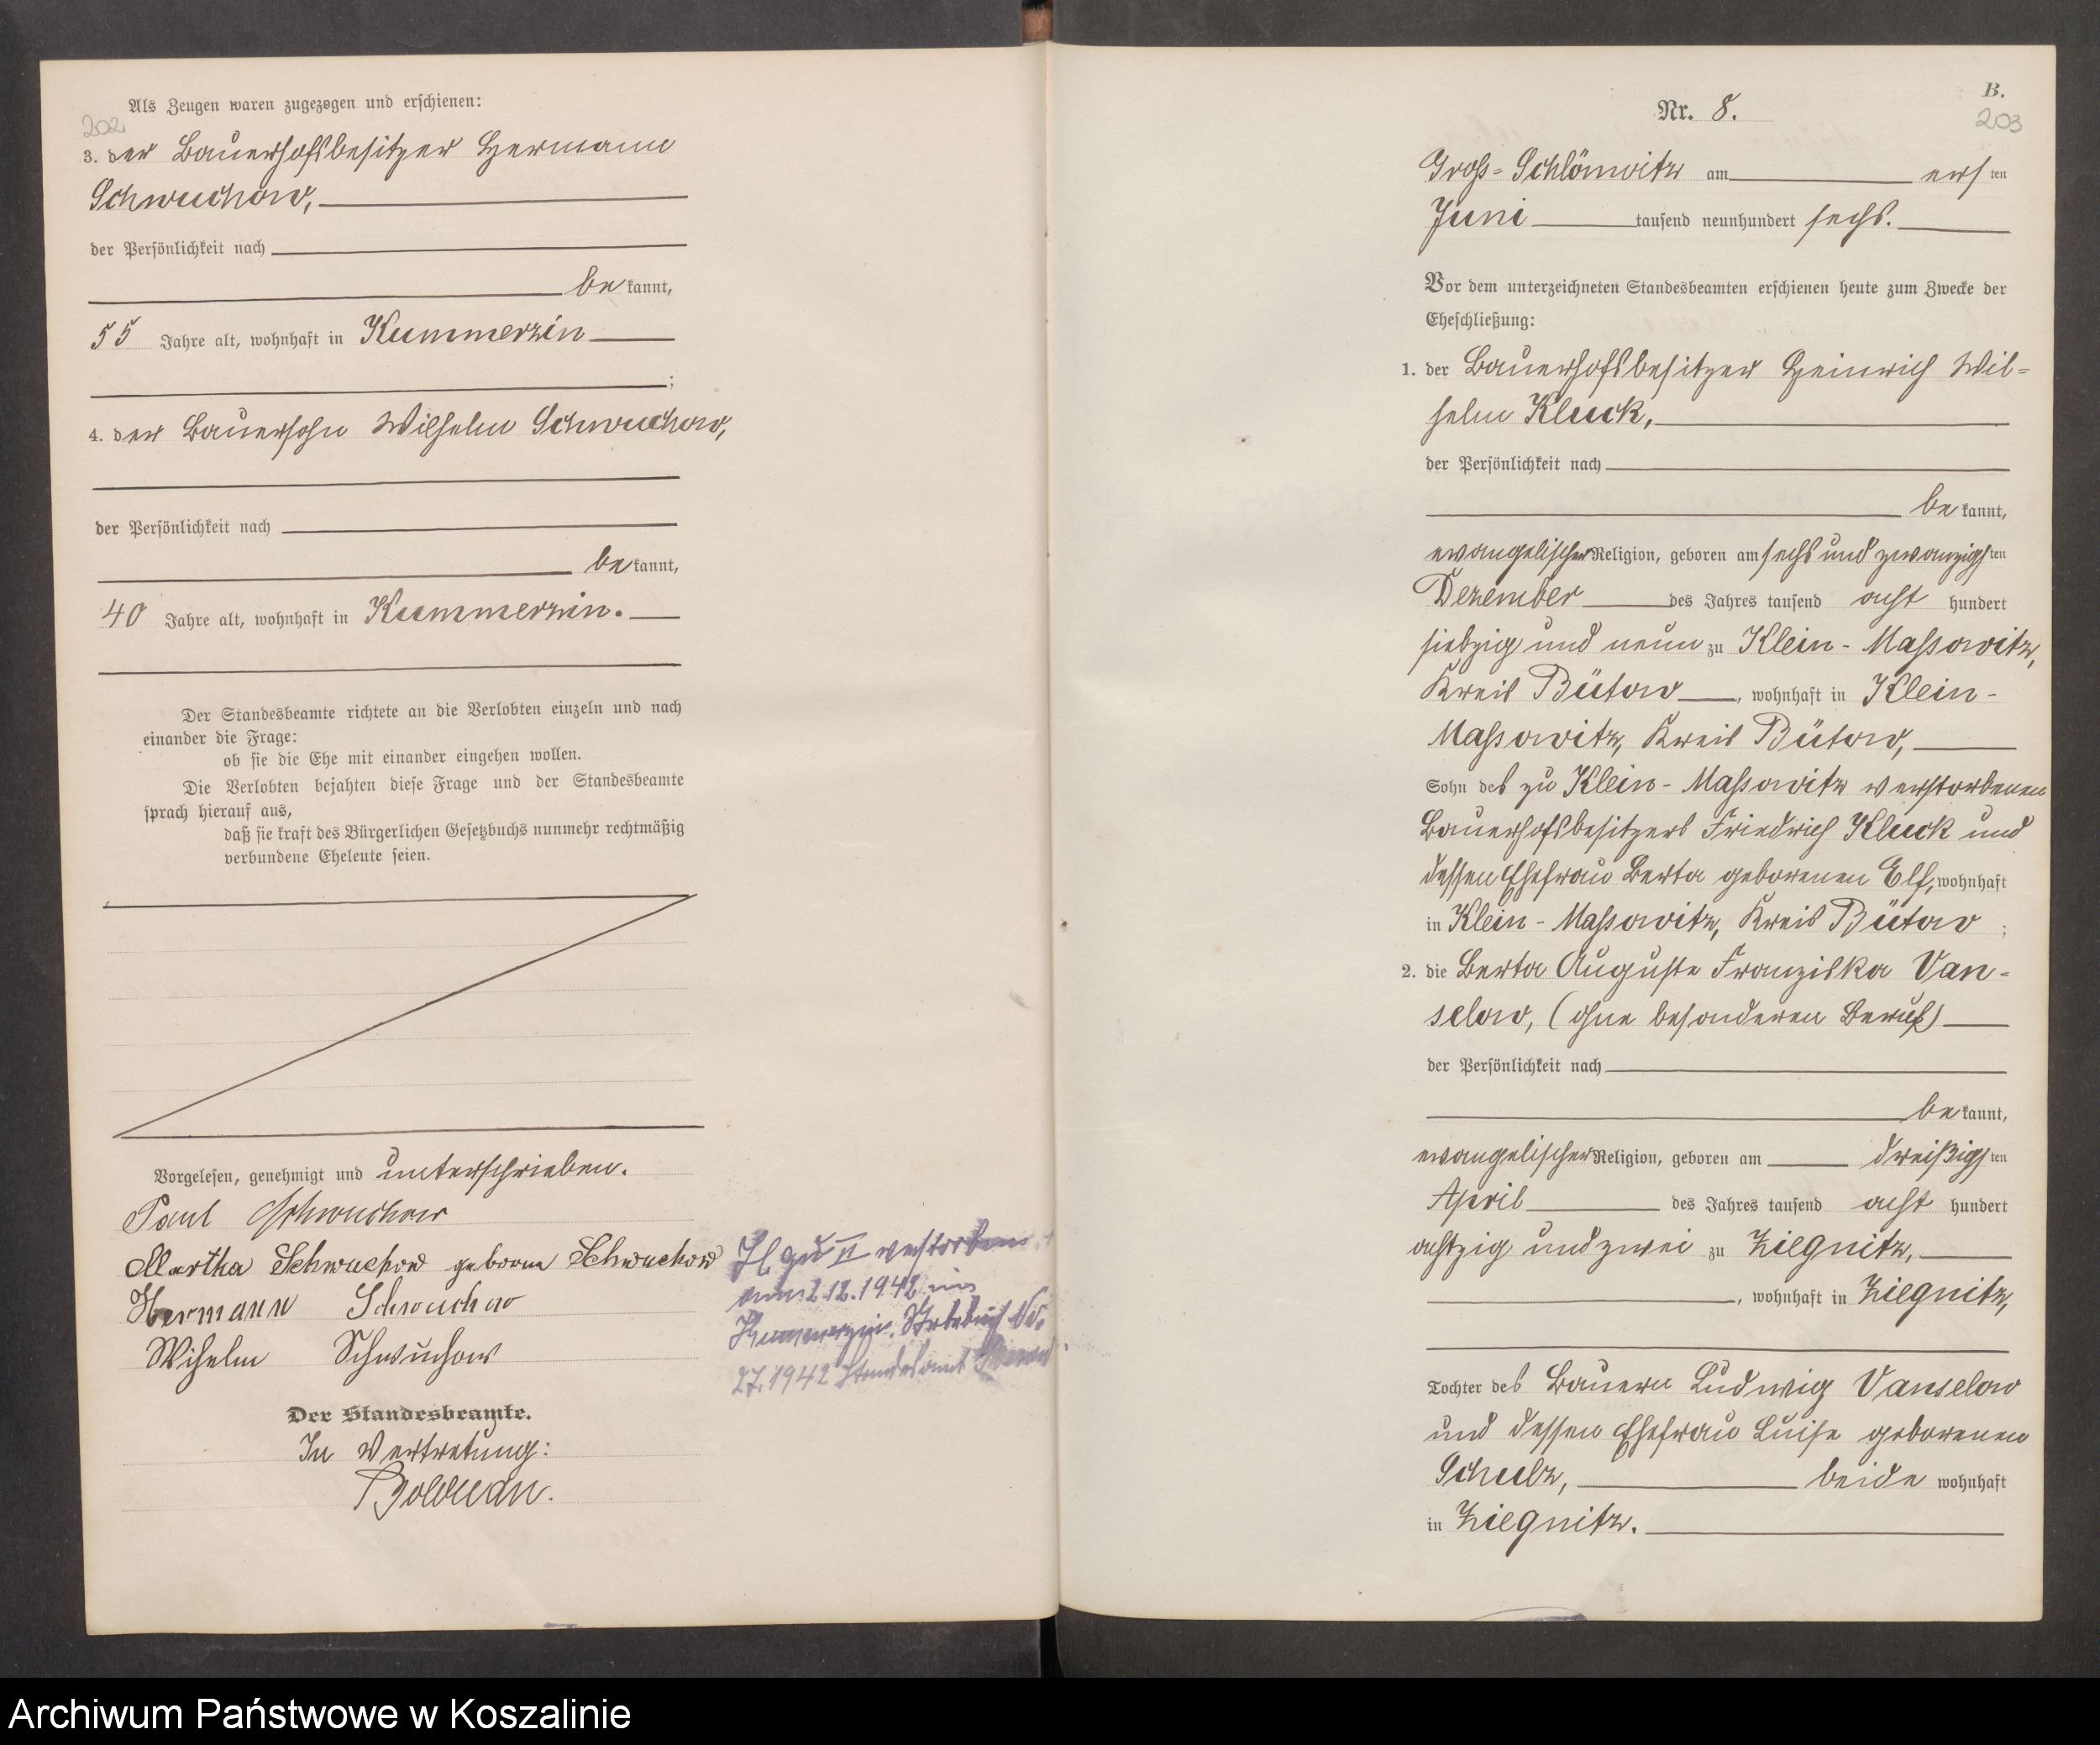 202
Als Zeugen waren zugezogen und erschienen:
3. der Bauerhofsbesitzer Hermann
Schwuchow,
der Persönlichkeit nach
be kannt,
55 Jahre alt, wohnhaft in Kummerzin
;
4. der Bauersohn Wilhelm Schwuchow,
der Persönlichkeit nach
be kannt,
40 Jahre alt, wohnhaft in Kummerzin.
Der Standesbeamte richtete an die Verlobten einzeln und nach
einander die Frage:
ob sie die Ehe mit einander eingehen wollen.
Die Verlobten bejahten diese Frage und der Standesbeamte
sprach hierauf aus,
daß sie kraft des Bürgerlichen Gesetzbuchs nunmehr rechtmäßig
verbundene Eheleute seien.
Vorgelesen, genehmigt und unterschrieben.
Paul Schwuchow
Martha Schwuchow geborne Schwuchow
Hermann Schwuchow
Wihelm Schwuchow
Der Standesbeamte.
In Vertretung:
zu II verstorben
am 2.12.1942 in
Kummerzin. Sterbebuch Nr.
27.1942 Standesamt
B.
203
Nr. 8.
Groß-Schlönwitz am ersten
Juni tausend neunhundert sechs.
Vor dem unterzeichneten Standesbeamten erschienen heute zum Zwecke der
Eheschließung:
1. der Bauerhofsbesitzer Heinrich Wil-
helm Kluck,
der Persönlichkeit nach
be kannt,
evangelischer Religion, geboren am sechs und zwanzigsten
Dezember des Jahres tausend acht hundert
siebzig und neun zu Klein-Massowitz,
Kreis Bütow, wohnhaft in Klein-
Massowitz, Kreis Bütow,
Sohn des zu Klein-Massowitz verstorbenen
Bauerhofsbesitzers Friedrich Kluck und
dessen Ehefrau Berta geborenen Elf, wohnhaft
in Klein-Massowitz, Kreis Bütow ;
2. die Berta Auguste Franziska Van-
selow, (ohne besonderen Beruf)
der Persönlichkeit nach
be kannt,
evangelischer Religion, geboren am dreißigsten
April des Jahres tausend acht hundert
achtzig und zwei zu Ziegnitz,
, wohnhaft in Ziegnitz,
Tochter des Bauern Ludwig Vanselow
und dessen Ehefrau Luise geborenen
Schulz, beide wohnhaft
in Ziegnitz.
Archiwum Państwowe w Koszalinie